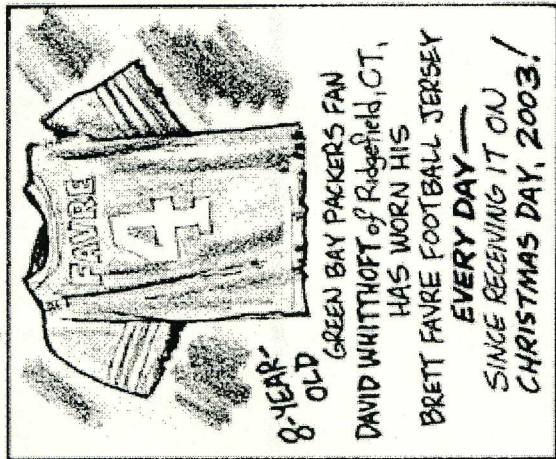 FAVRE
4
8-YEAR-
OLD
GREEN BAY PACKERS FAN
DAVID WHITTHOFT of Ridgefield, CT,
HAS WORN HIS
BRETT FAVRE FOOTBALL JERSEY
EVERY DAY—
SINCE RECEIVING IT ON
CHRISTMAS DAY, 2003!